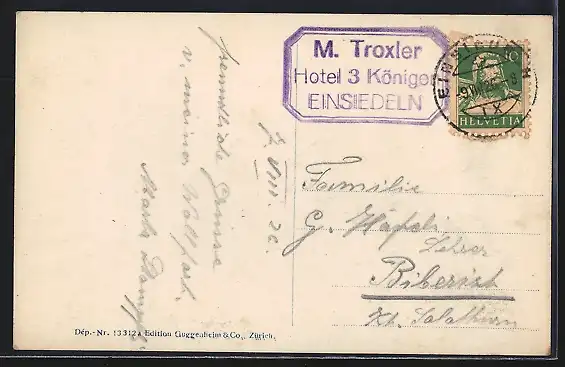 M. Troxler
Hotel 3 Königen
EINSIEDELN
10
HELVETIA
EINSIEDELN
freundliche Grüsse
v. meiner Wallfart.
Martha
7. VIII. 26.
Familie
G. Häfeli
Lehrer
Biberist
Kt. Solothurn
Dép.-Nr. 13312a Edition Guggenheim & Co., Zürich.